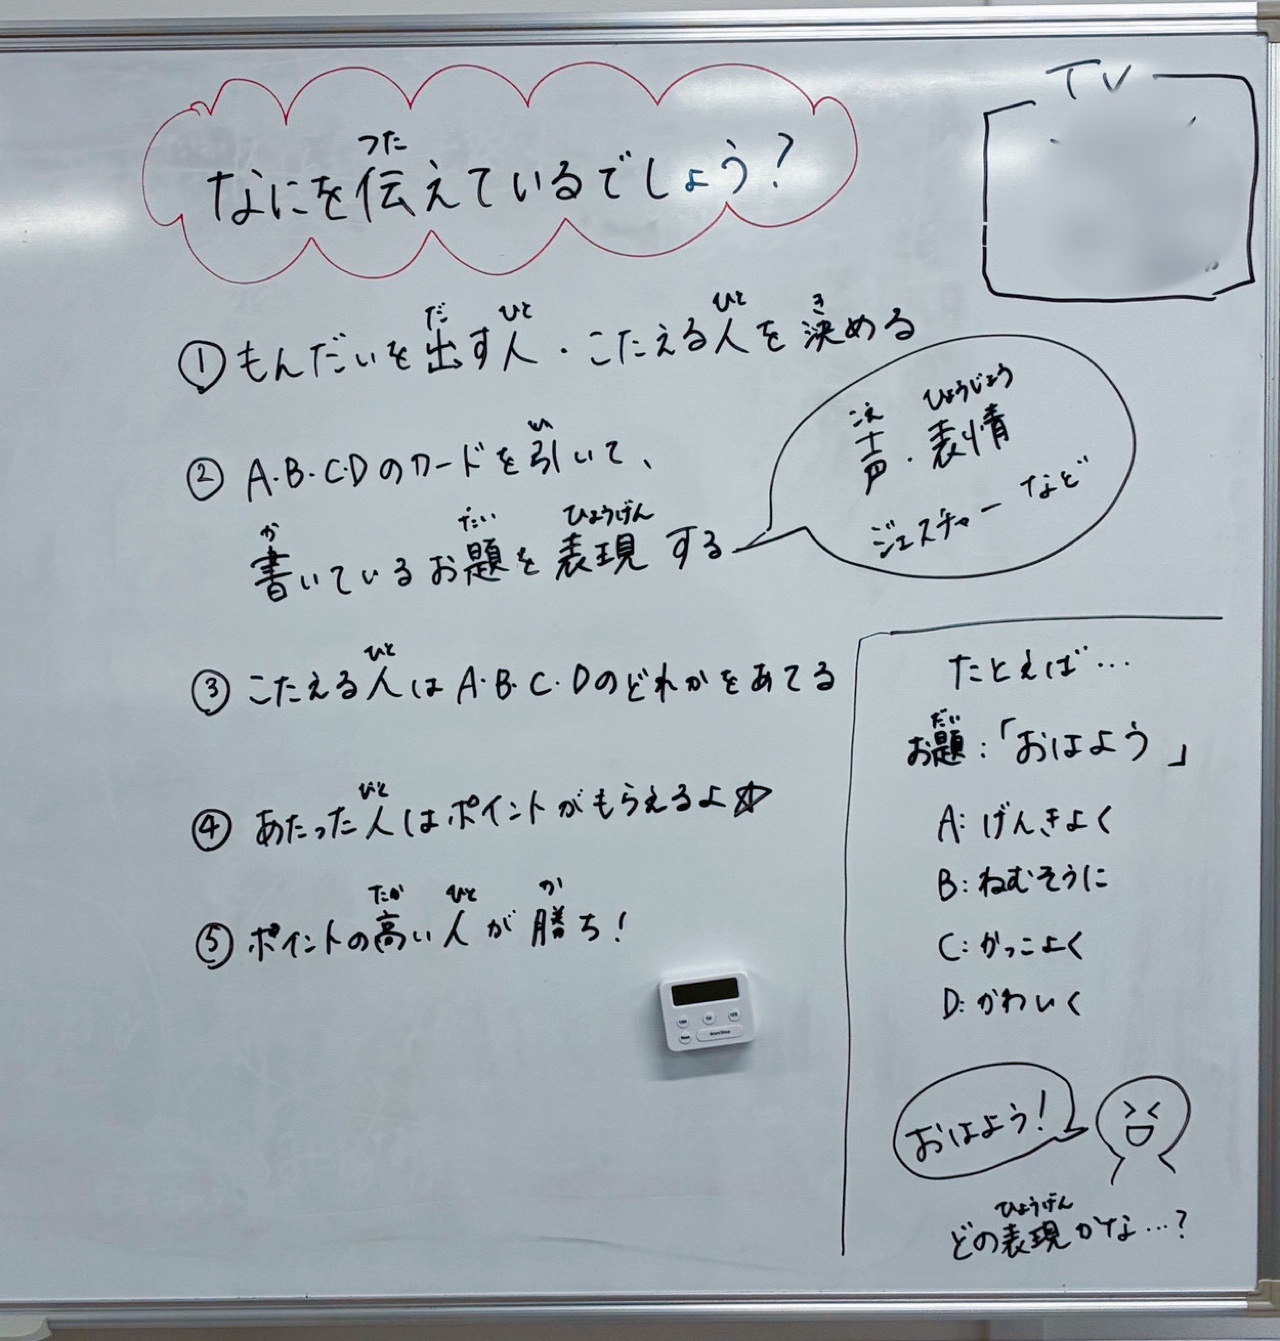 TV
つた
なにを伝えているでしょう?
だ ひと ひと き
①もんだいを出す人・こたえる人を決める
い
②A・B・C・Dのカードを引いて、
か だい ひょうげん
書いているお題を表現する
こえ ひょうじょう
声・表情
ジェスチャーなど
ひと
③こたえる人はA・B・C・Dのどれかをあてる
ひと
④あたった人はポイントがもらえるよ☆
たか ひと か
⑤ポイントの高い人が勝ち!
たとえば…
だい
お題:「おはよう」
A:げんきよく
B:ねむそうに
C:かっこよく
D:かわいく
おはよう!
ひょうげん
どの表現かな…?